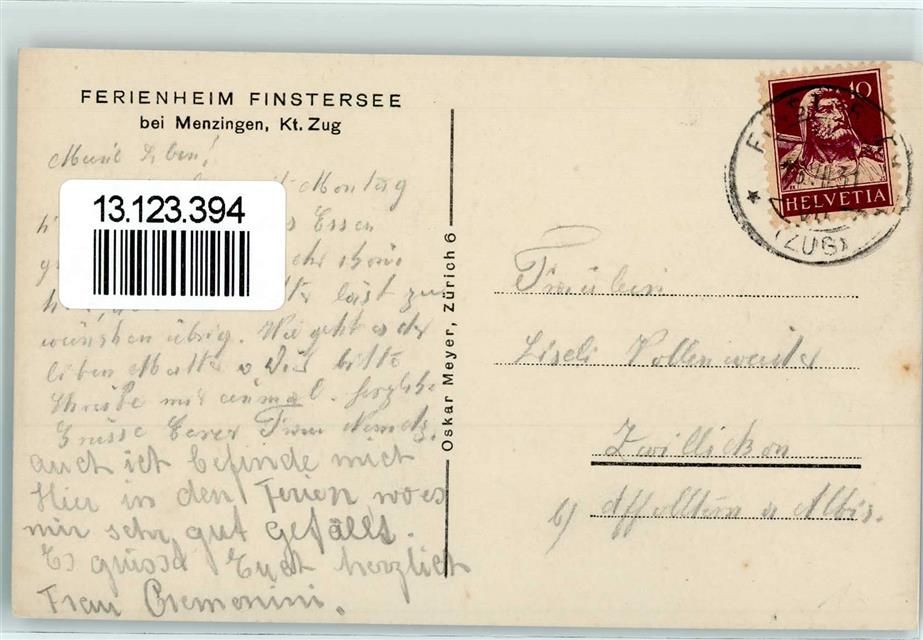 FERIENHEIM FINSTERSEE
bei Menzingen, Kt. Zug
Meine Lben!
Montag
Essen
läst zu
wünschen übrig. Wie geht es der
lieben Mutter u Dir bitte
schreibe mir einmal. herzliche
Grüsse Eurer Frau
auch ich befinde mich
Hier in den Ferien, wo es
mir sehr gut gefällt.
Es grüsst Euch herzlich
Frau Cremonini.
13.123.394
Oskar Meyer, Zürich 6
10
HELVETIA
(ZUG)
Fräulein
Liseli Vollenweider
Zwillikon
b/ Affoltern a Albis.